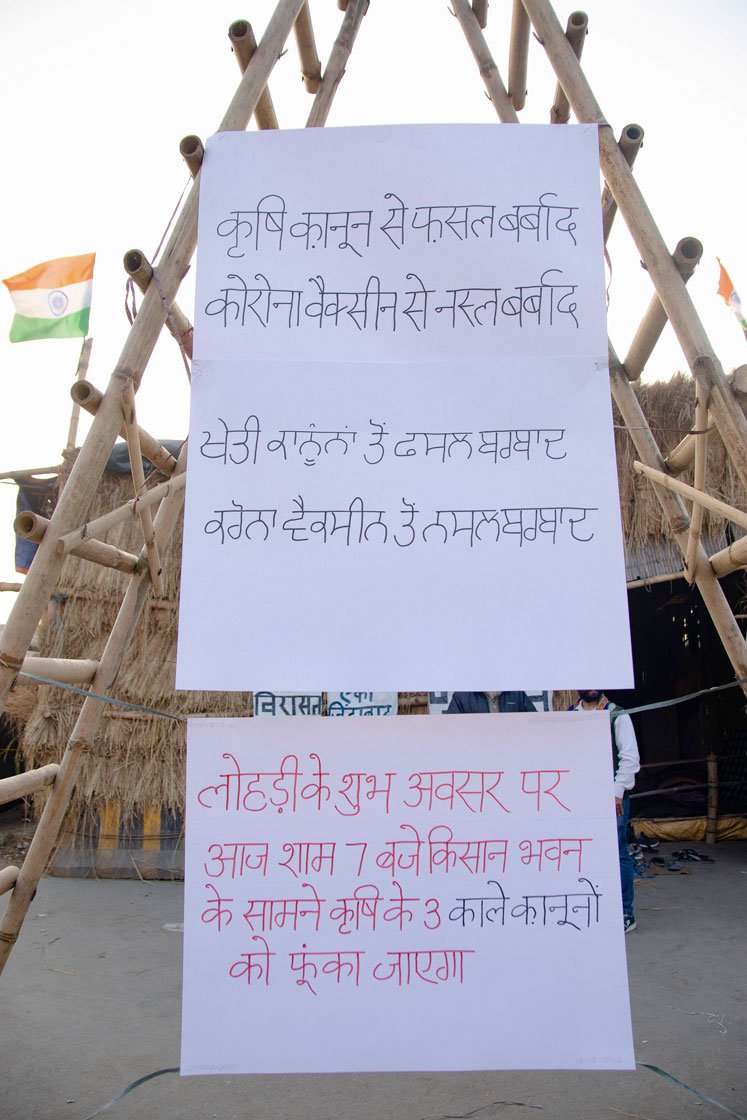 कृषि क़ानून से फ़सल बर्बाद
कोरोना वैक्सीन से नस्ल बर्बाद
ਖੇਤੀ ਕਾਨੂੰਨਾਂ ਤੋਂ ਫਸਲ ਬਰਬਾਦ
ਕਰੋਨਾ ਵੈਕਸੀਨ ਤੋਂ ਨਸਲ ਬਰਬਾਦ
विरासत
एका
ज़िंदाबाद
लोहड़ी के शुभ अवसर पर
आज शाम 7 बजे किसान भवन
के सामने कृषि के 3 काले क़ानूनों
को फूंका जाएगा